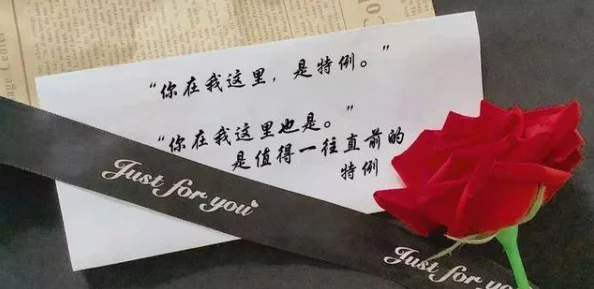 “你在我这里，是特例。”
“你在我这里也是。”
是值得一往直前的
特例
Just for you
Just for you